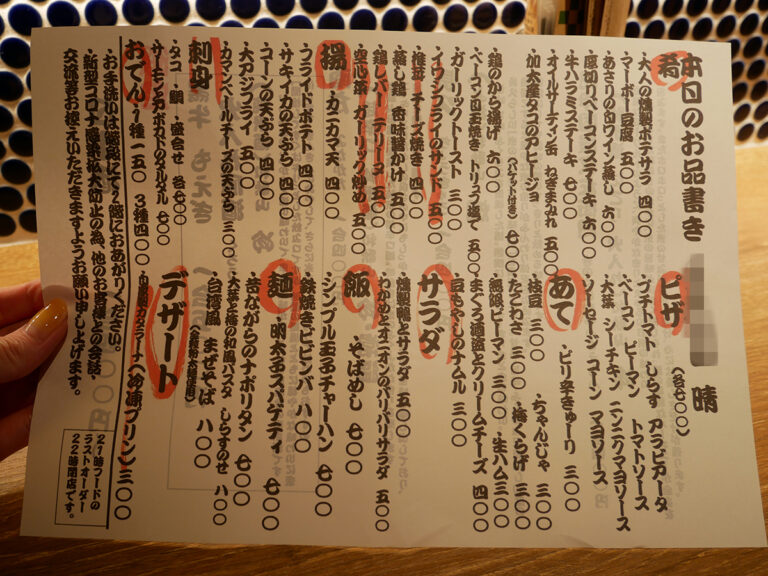 本日のお品書き
晴
肴
・大人の燻製ポテサラ 四〇〇
・マーボー豆腐 五〇〇
・あさりの白ワイン蒸し 六〇〇
・厚切りベーコンステーキ 六〇〇
・牛ハラミステーキ 七〇〇
・オイルサーディン缶 ねぎまみれ 五〇〇
・加太産タコのアヒージョ
(バケット付き) 七〇〇
・鶏のから揚げ 六〇〇
・ベーコン四玉焼き トリュフ塩で 五〇〇
・ガーリックトースト 三〇〇
・イワシフライのサンド 五〇〇
・椎茸チーズ焼き 四〇〇
・蒸し鶏 香味醤かけ 五〇〇
・鶏レバーテリーヌ 五〇〇
・空心菜 ガーリック炒め 五〇〇
揚
・カニカマ天 四〇〇
・フライドポテト 四〇〇
・サキイカの天ぷら 四〇〇
・コーンの天ぷら 四〇〇
・大アジフライ 五〇〇
・カマンベールチーズの天ぷら 三〇〇
刺身
・タコ ・鯛 ・盛合せ 各七〇〇
・サーモンアボカドのタルタル 七〇〇
おでん
1種 一五〇 3種四〇〇
ピザ
(各七〇〇)
・プチトマト しらす アラビアータ
・ベーコン ピーマン トマトソース
・大葉 シーチキン ニンニクマヨソース
・ソーセージ コーン マヨソース
あて
・ピリ辛きゅーり 三〇〇
・枝豆 三〇〇
・ちゃんじゃ 三〇〇
・たこわさ 三〇〇
・梅くらげ 三〇〇
・無限ピーマン 三〇〇
・生ハム 三〇〇
・まぐろ酒盗とクリームチーズ 四〇〇
・豆もやしのナムル 三〇〇
サラダ
・燻製鴨とサラダ 五〇〇
・わかめとオニオンのパリパリサラダ 五〇〇
飯
・そばめし 七〇〇
・シンプル玉子チャーハン 七〇〇
・鉄焼きビビンバ 八〇〇
麺
・明太玉スパゲティ 七〇〇
・昔ながらのナポリタン 七〇〇
・大葉と梅の和風パスタ しらすのせ 八〇〇
・台湾風 まぜそば 八〇〇
デザート
カタラーナ(冷凍プリン) 三〇〇
お手洗いは
にて2階におあがりください。
・新型コロナ感染拡大防止の為、他のお客様との会話、
交流等お控えいただきますようお願い申し上げます。
21時フードの
ラストオーダー
22時閉店です。